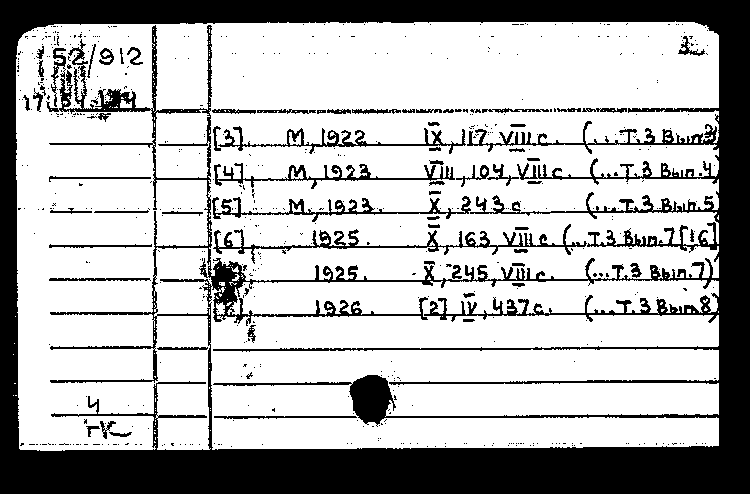 52/912
[3] М., 1922. IX, 117, VIII с. (...Т.3 Вып.3)
[4] М., 1923. VIII, 104, VIII с. (...Т.3 Вып.4)
[5] М., 1923. X, 243 с. (...Т.3 Вып.5)
[6], 1925. X, 163, VIII с. (...Т.3 Вып.7[!6]
1925. X, 245, VIII с. (...Т.3 Вып.7)
1926. [2], IV, 437 с. (...Т.3 Вып.8)
Ч